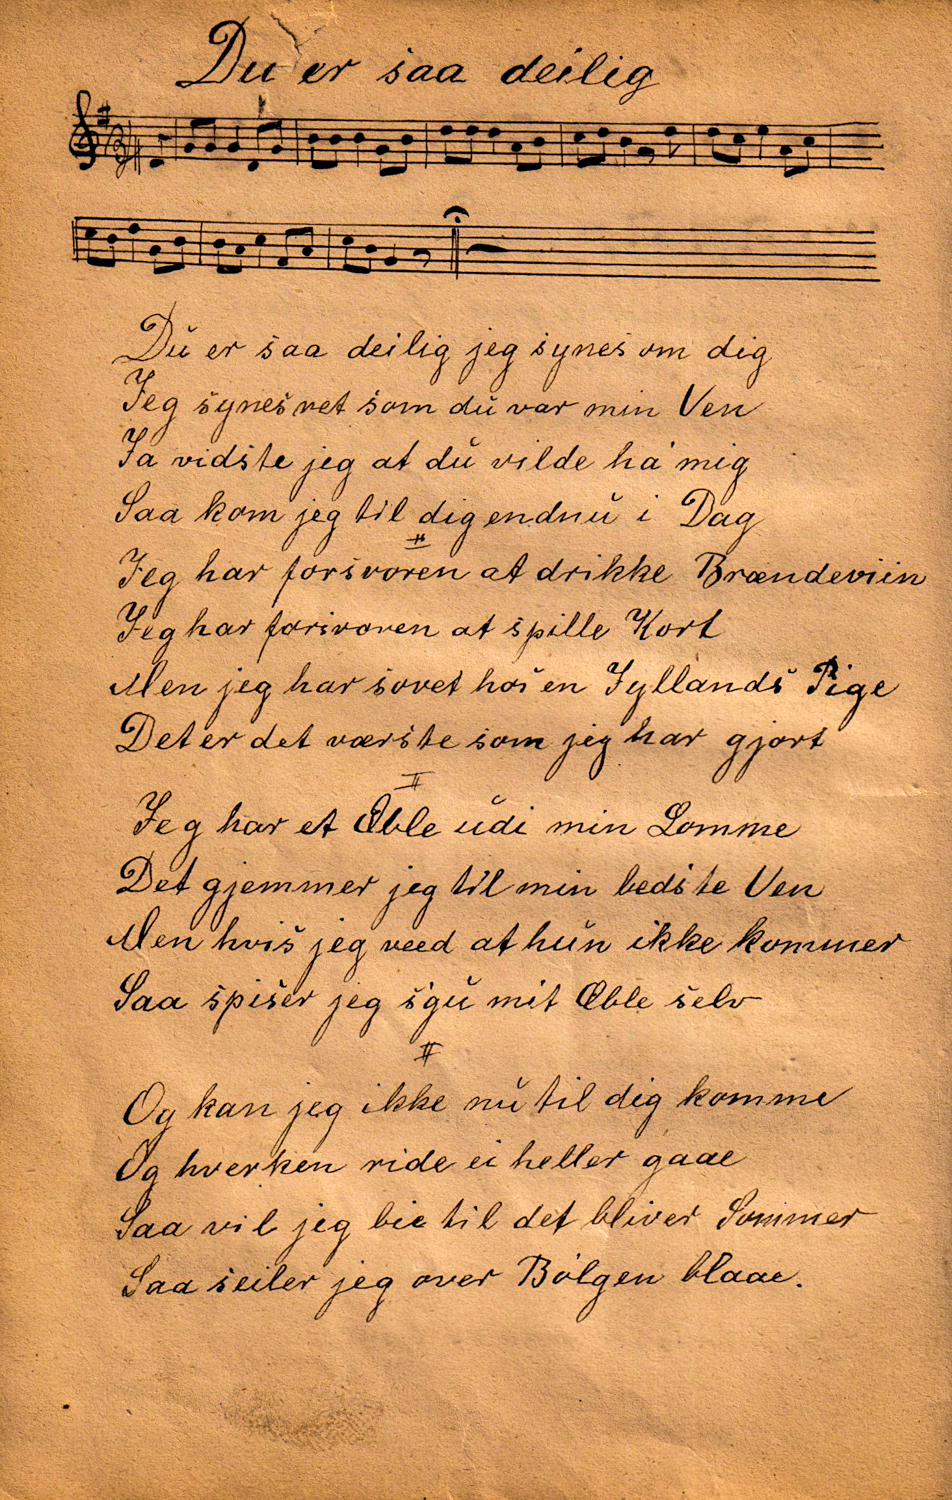 Du er saa deilig
Du er saa deilig jeg synes om dig
Jeg synes ret som du var min Ven
Ja vidste jeg at du vilde ha' mig
Saa kom jeg til dig endnu i Dag
II
Jeg har forsvoren at drikke Brændeviin
Jeg har forsvoren at spille Kort
Men jeg har sovet hos en Jyllands Pige
Det er det værste som jeg har gjort
II
Jeg har et Æble udi min Lomme
Det gjemmer jeg til min bedste Ven
Men hvis jeg veed at hun ikke kommer
Saa spiser jeg s'gu mit Æble selv
II
Og kan jeg ikke nu til dig komme
Og hverken ride ei heller gaae
Saa vil jeg bie til det bliver Sommer
Saa seiler jeg over Bólgen blaae.